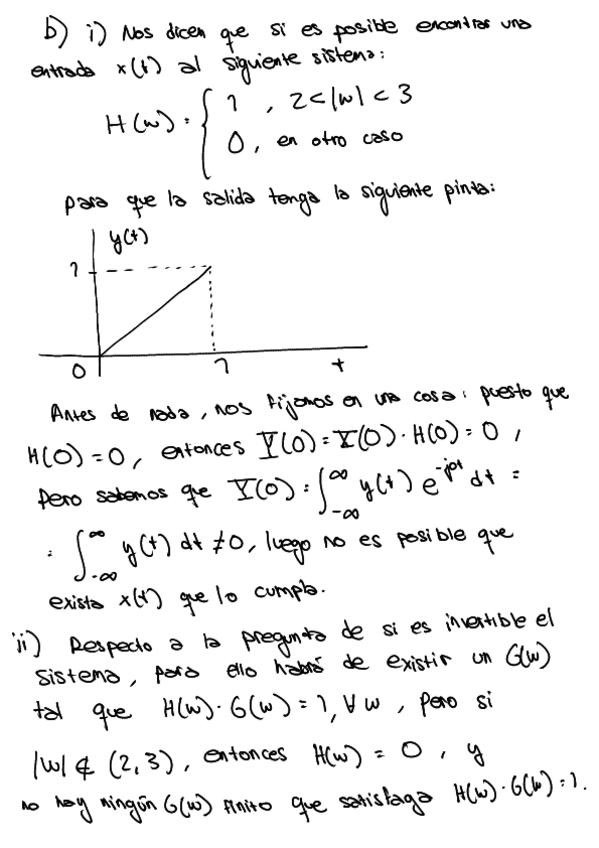 b) i) Nos dicen que si es posible encontrar una
entrada x(t) al siguiente sistema:
H(w) = { 1 , 2 < |w| < 3
0, en otro caso
para que la salida tenga la siguiente pinta:
y(t)
1
0 1 t
Antes de nada, nos fijamos en una cosa: puesto que
H(0) = 0, entonces Y(0) = X(0) · H(0) = 0 ,
Pero sabemos que Y(0) = ∫_{-∞}^{∞} y(t) e^{-j0t} dt =
= ∫_{-∞}^{∞} y(t) dt ≠ 0, luego no es posible que
exista x(t) que lo cumpla.
ii) Respecto a la pregunta de si es invertible el
sistema, para ello habrá de existir un G(w)
tal que H(w) · G(w) = 1, ∀ w , pero si
|w| ∉ (2, 3), entonces H(w) = 0 , y
no hay ningún G(w) finito que satisfaga H(w) · G(w) = 1.